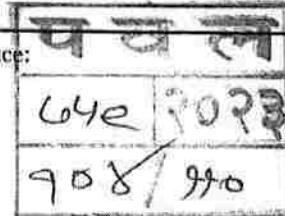 ce:
प व ल
७५९ २०२३
१०४/११०